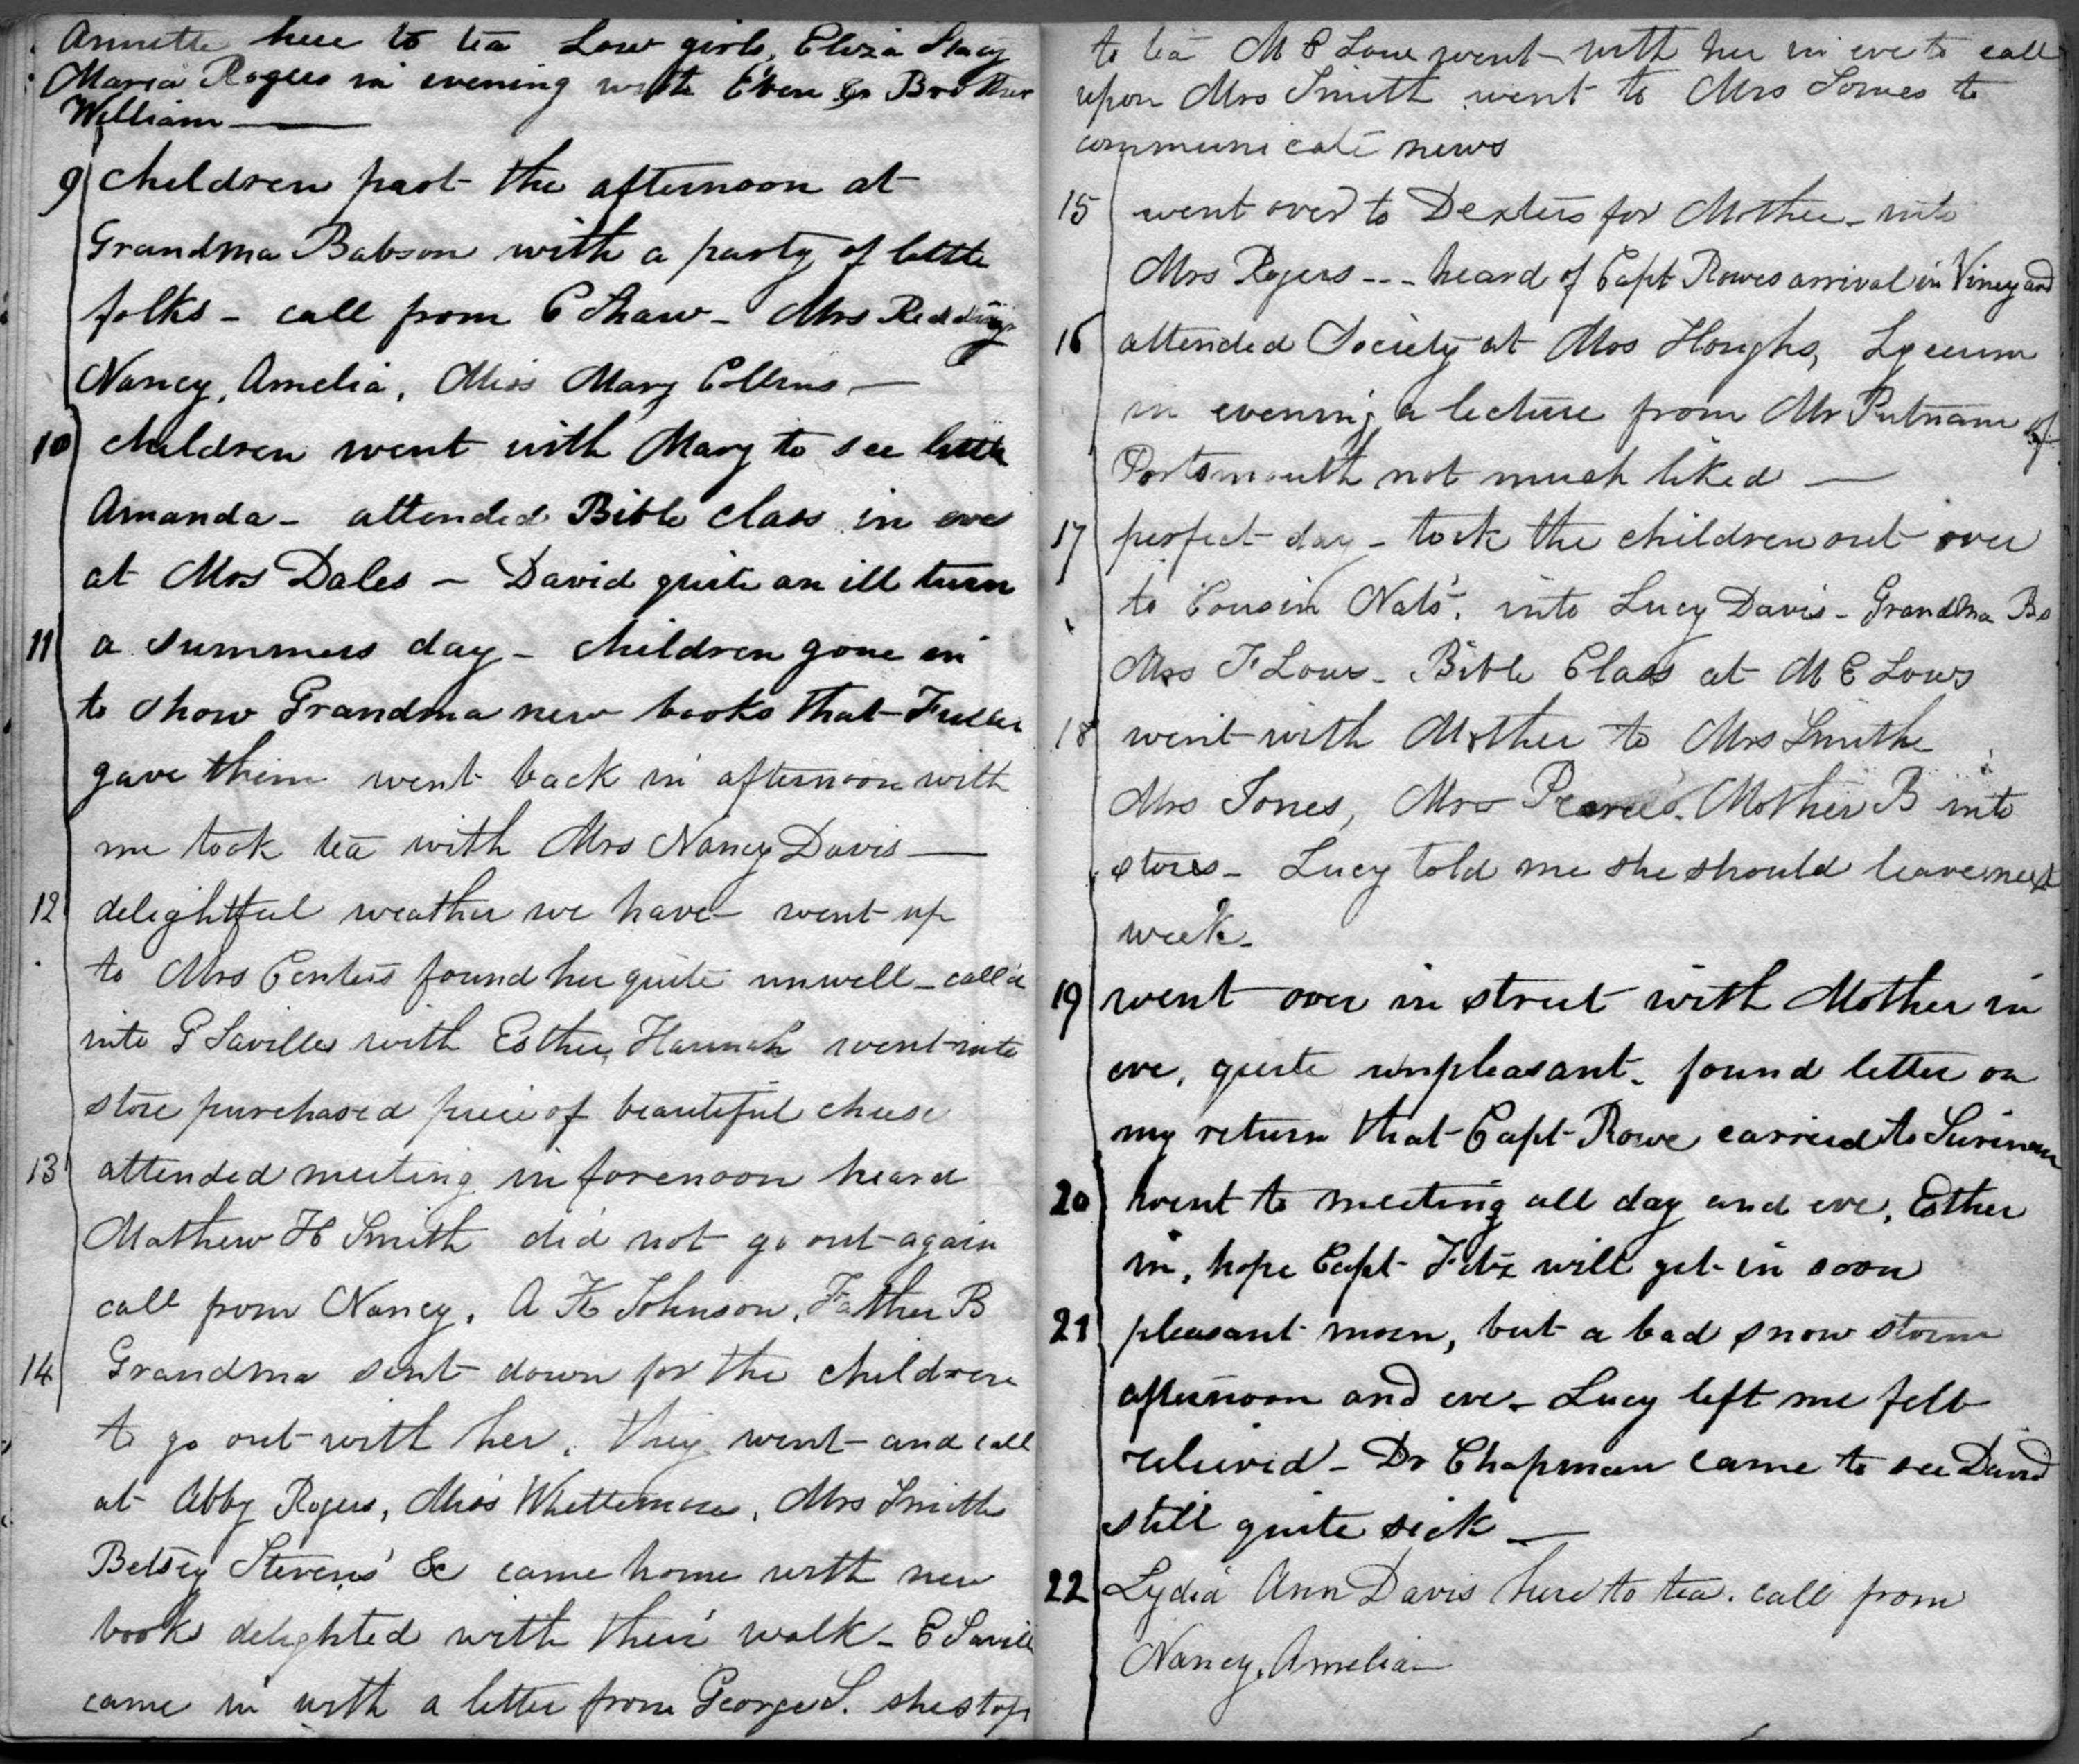 Annette here to tea Low girls, Eliza Stacy
Maria Rogers in evening with Eben & Brother
William —
9 children past the afternoon at
Grandma Babson with a party of little
folks - call from C Shaw - Mrs Reddings
Nancy, Amelia, Miss Mary Collins —
10 children went with Mary to see little
Amanda - attended Bible class in eve
at Mrs Dales - David quite an ill turn
11 a summers day - children gone in
to show Grandma new books that Fuller
gave them went back in afternoon with
me took tea with Mrs Nancy Davis —
12 delightful weather we have - went up
to Mrs Centers found her quite unwell - call'd
into G Savilles with Esther, Hannah went into
store purchased piece of beautiful cheese
13 attended meeting in forenoon heard
Mathew H Smith did not go out again
call from Nancy, A K Johnson, Father B
14 Grandma sent down for the children
to go out with her, they went and call
at Abby Rogers, Miss Whittemores, Mrs Smiths
Betsey Stevens' &c came home with new
books delighted with their walk - E Saville
came in with a letter from George S. she stop
to tea M E Low went with her in eve to call
upon Mrs Smith went to Mrs Somes to
communicate news
15 went over to Dexters for Mother - into
Mrs Rogers --- heard of Capt Rowes arrival in Vineyard
16 attended Society at Mrs Houghs, Lyceum
in evening a lecture from Mr Putnam of
Portsmouth not much liked —
17 perfect day - took the children out over
to Cousin Nats', into Lucy Davis - Grandma Bs
Mrs F Lows - Bible Class at M E Lows
18 went with Mother to Mrs Smiths
Mrs Jones, Mrs Pearce's. Mother B into
stores - Lucy told me she should leave next
week -
19 went over in street with Mother in
eve, quite unpleasant - found letter on
my return that Capt Rowe carried to Surinam
20 went to meeting all day and eve, Esther
in, hope Capt Fitz will get in soon
21 pleasant morn, but a bad snow storm
afternoon and eve - Lucy left me felt
relieved - Dr Chapman came to see David
still quite sick —
22 Lydia Ann Davis here to tea. call from
Nancy, Amelia —